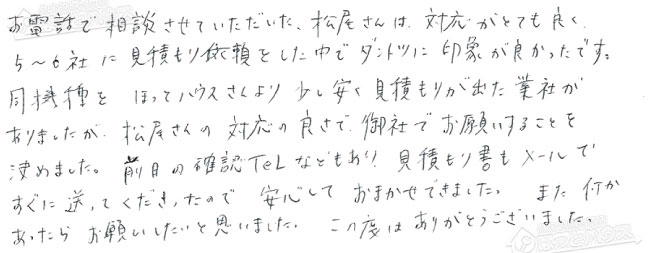 お電話で相談させていただいた、松尾さんは、対応がとても良く、
5〜6社に見積もり依頼をした中でダントツに印象が良かったです。
同機種を ほっとハウスさんより少し安く見積もりが出た業社が
ありましたが、松尾さんの対応の良さで、御社でお願いすることを
決めました。前日の確認TeLなどもあり、見積もり書もメールで
すぐに送ってくださったので 安心しておまかせできました。また何か
あったらお願いしたいと思いました。この度はありがとうございました。